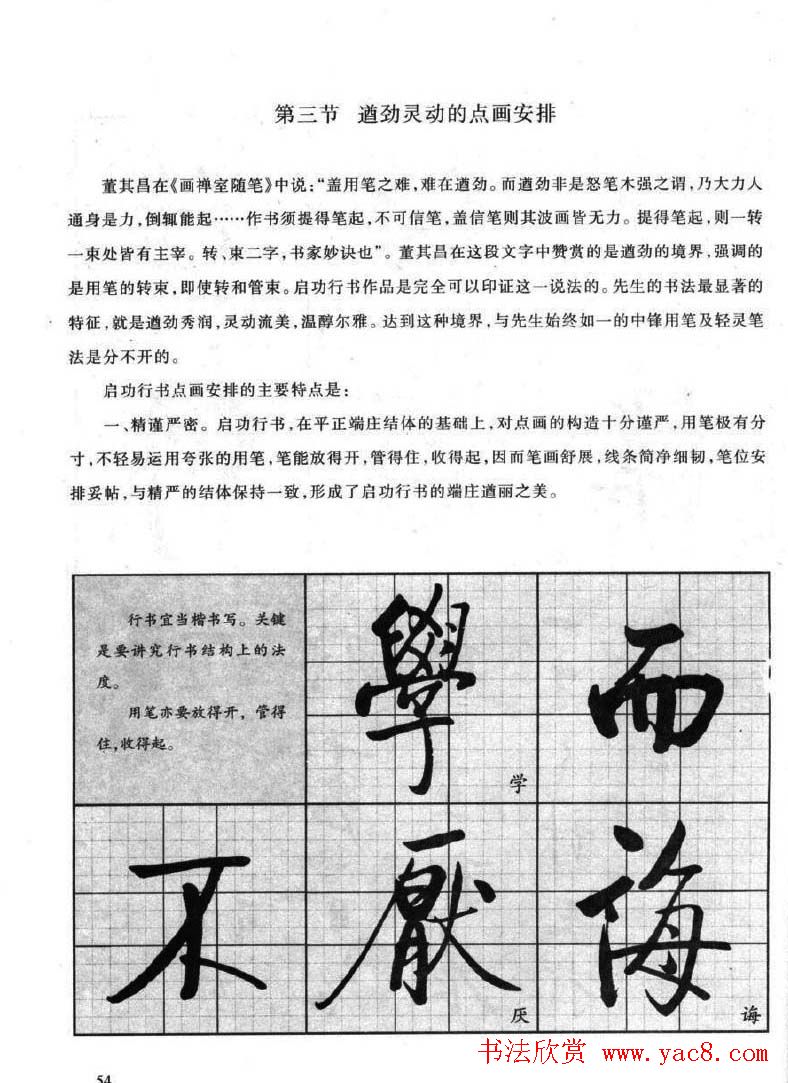 第三节 遒劲灵动的点画安排
董其昌在《画禅室随笔》中说:“盖用笔之难,难在遒劲。而遒劲非是怒笔木强之谓,乃大力人
通身是力,倒辄能起……作书须提得笔起,不可信笔,盖信笔则其波画皆无力。提得笔起,则一转
一束处皆有主宰。转、束二字,书家妙诀也”。董其昌在这段文字中赞赏的是遒劲的境界,强调的
是用笔的转束,即使转和管束。启功行书作品是完全可以印证这一说法的。先生的书法最显著的
特征,就是遒劲秀润,灵动流美,温醇尔雅。达到这种境界,与先生始终如一的中锋用笔及轻灵笔
法是分不开的。
启功行书点画安排的主要特点是:
一、精谨严密。启功行书,在平正端庄结体的基础上,对点画的构造十分谨严,用笔极有分
寸,不轻易运用夸张的用笔,笔能放得开,管得住,收得起,因而笔画舒展,线条简净细韧,笔位安
排妥帖,与精严的结体保持一致,形成了启功行书的端庄遒丽之美。
行书宜当楷书写。关键
是要讲究行书结构上的法
度。
用笔亦要放得开,管得
住,收得起。
學 而
学
不 厭 誨
厌 诲
书法欣赏 www.yac8.com
54